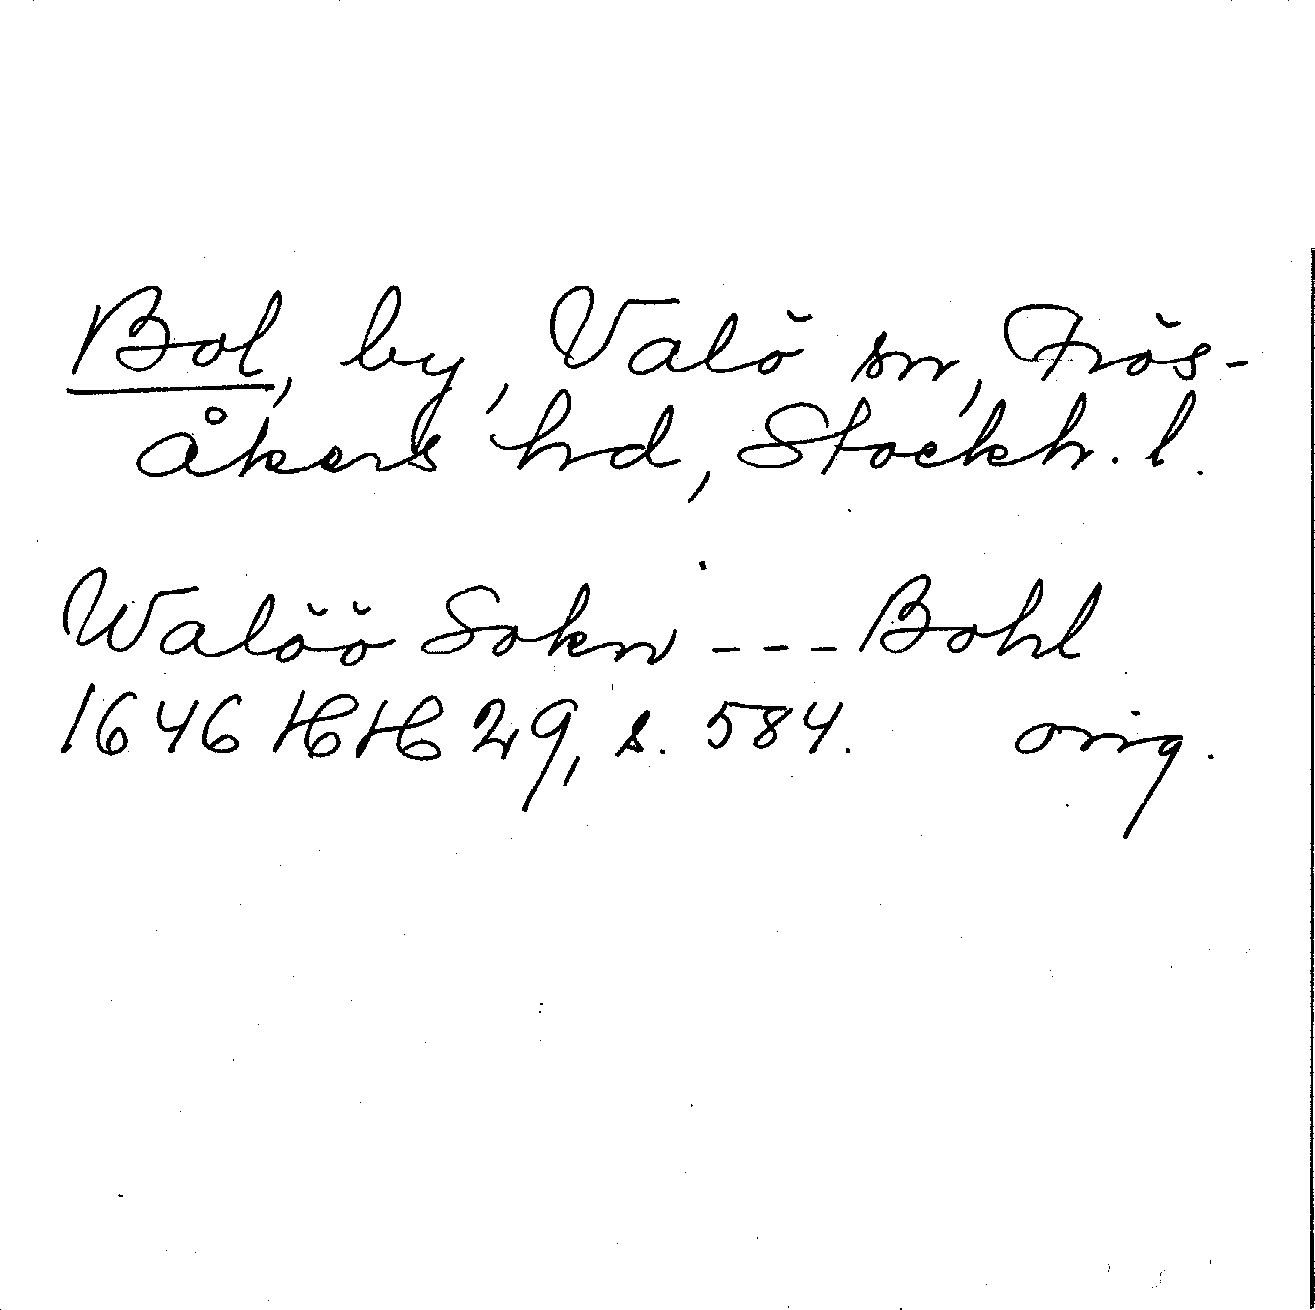 Bol, by, Valö sn, Frös-
åkers hd, Stockh. l.
Walöö Sokn - - - Bohl
1646 HH 29, s. 584. orig.